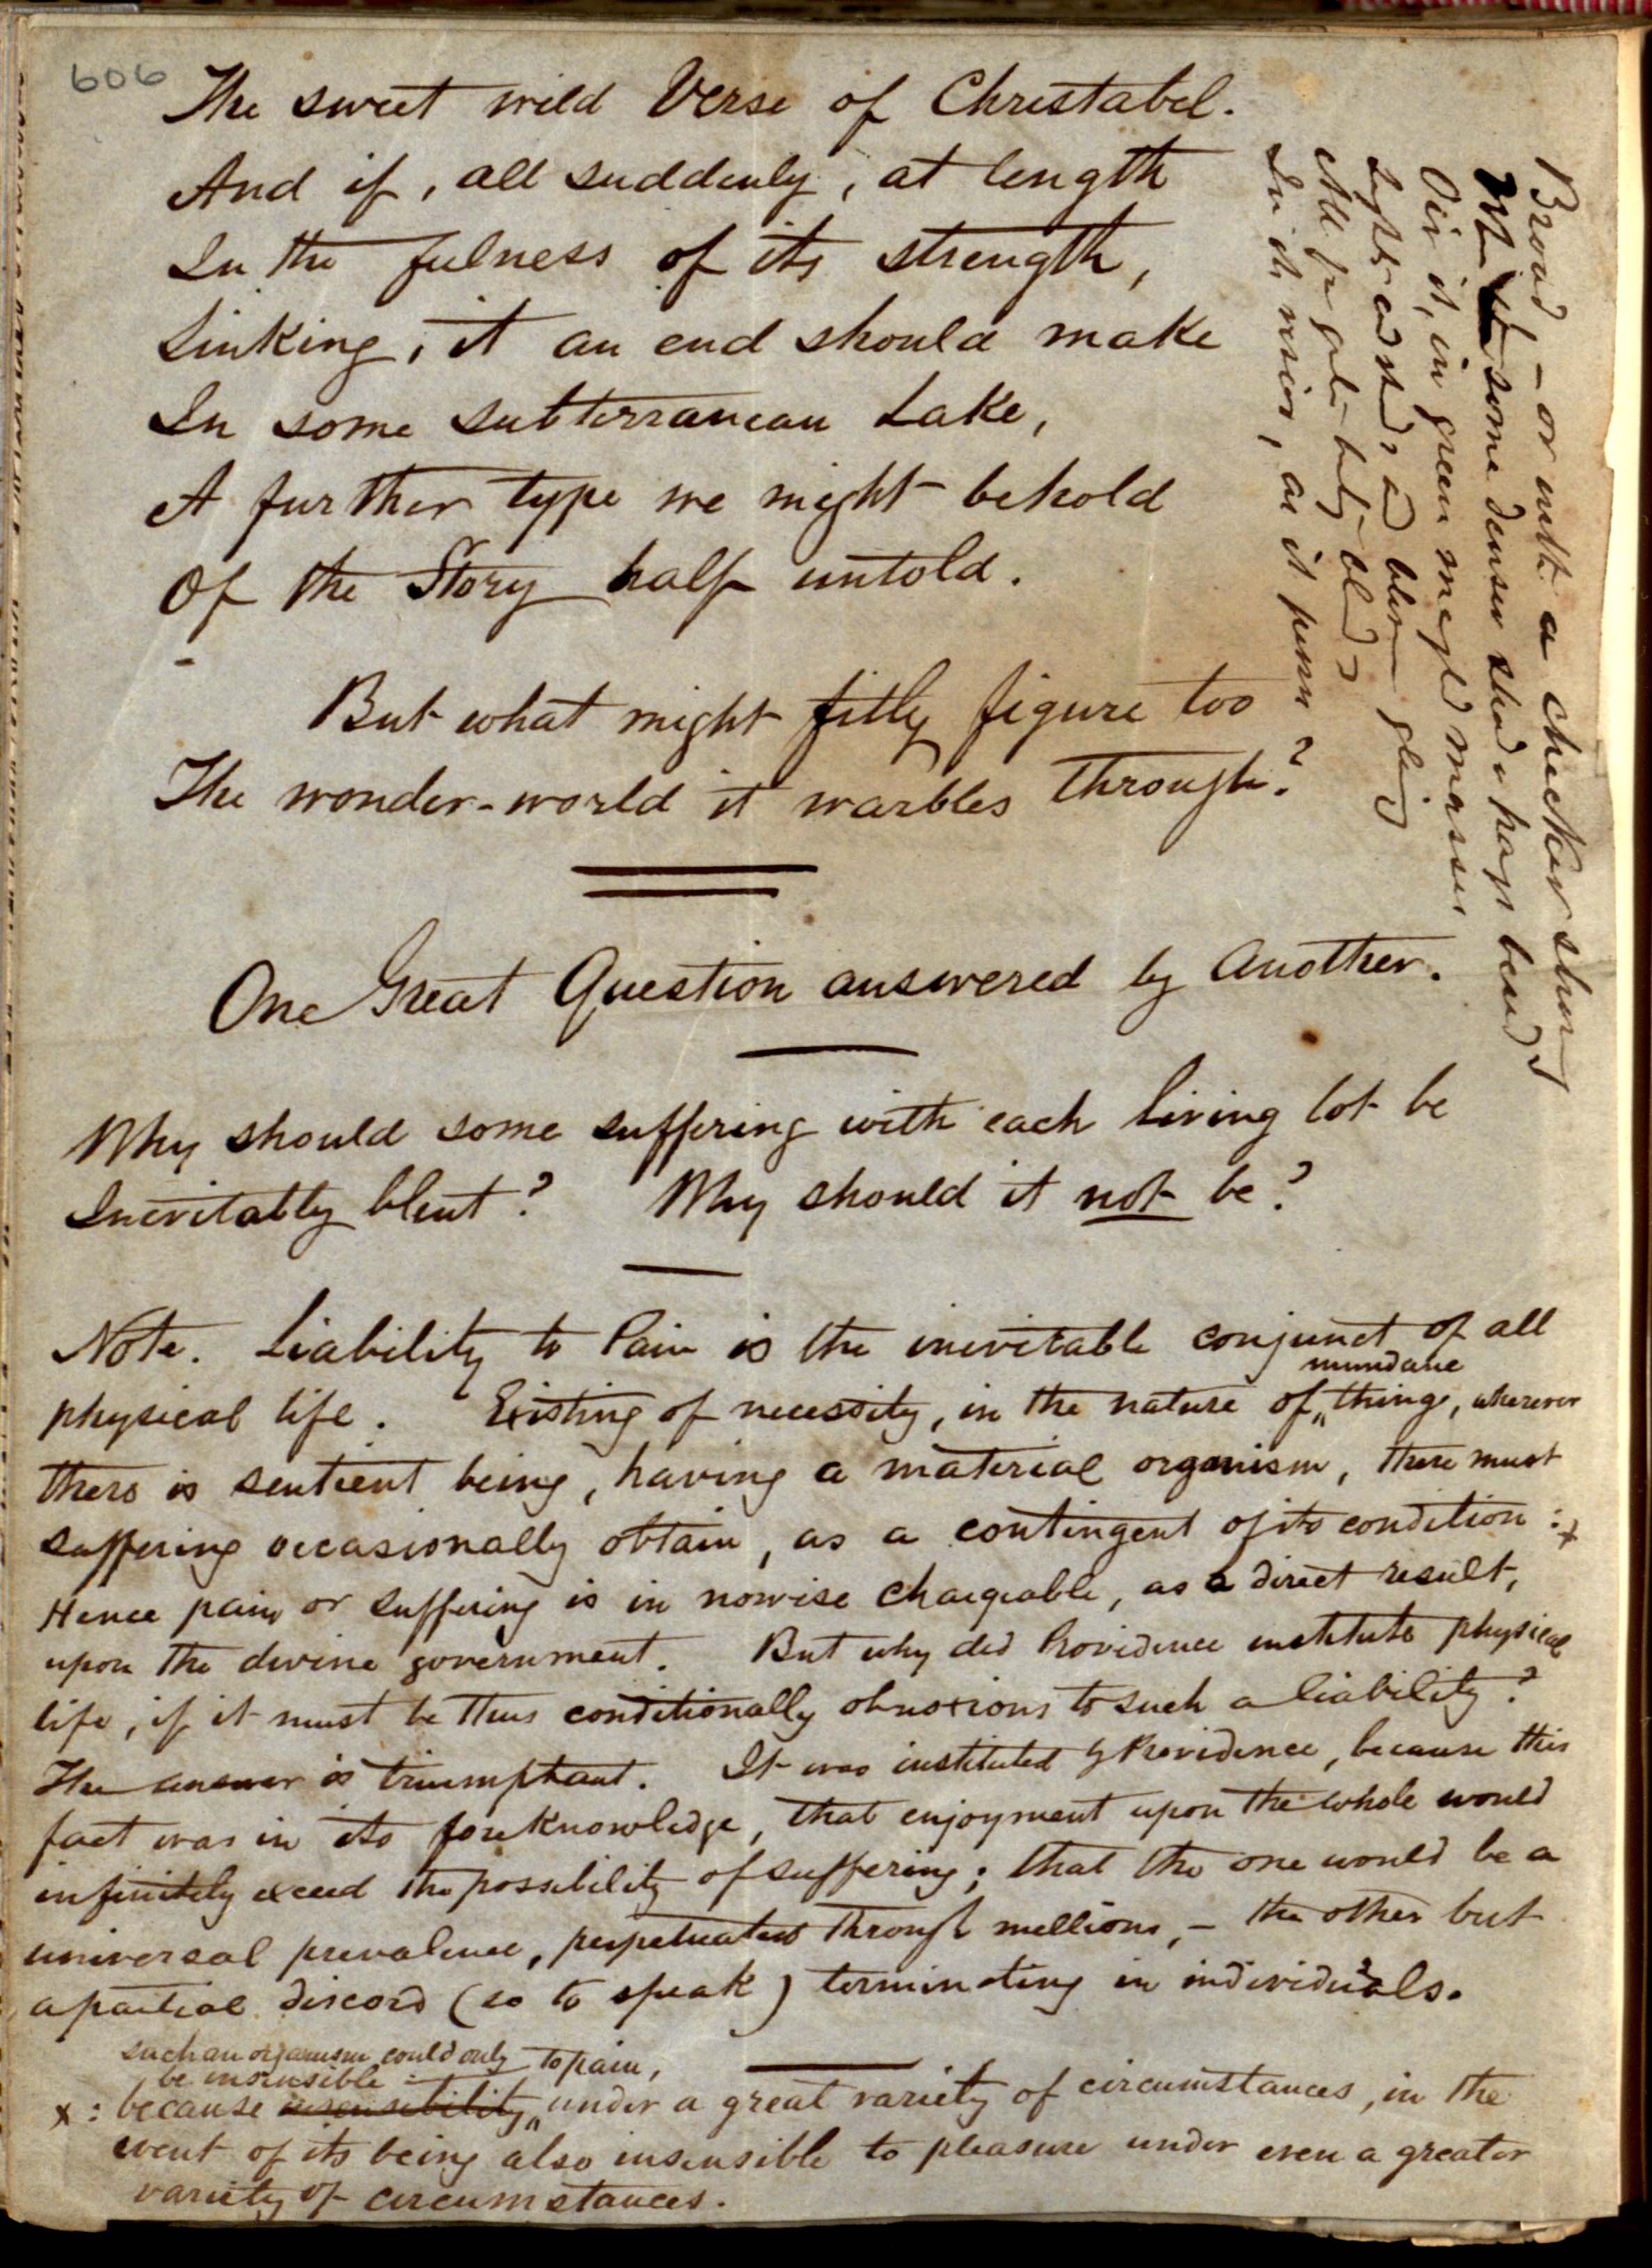 606
The sweet wild Verse of Christabel.
And if, all suddenly, at length
In the fulness of its strength,
Sinking, it an end should make
In some subterranean Lake,
A further type we might behold
Of the Story half untold.
But what might fitly figure too
The wonder-world it warbles through?
Broad – or with a checker shine
some denser shade perhaps bend
O'er it, in green mingled masses
Light and shade, and bloom
All
In its vision, as it passes?
One Great Question answered by Another.
Why should some suffering with each living lot be
Inevitably blent? Why should it not be?
Note. Liability to Pain is the inevitable conjunct of all
mundane
physical life. Existing of necessity, in the nature of things, wherever
there is sentient being, having a material organism, there must
suffering occasionally obtain, as a contingent of its condition :x
Hence pain or suffering is in nowise chargeable, as a direct result,
upon the divine government. But why did Providence institute physical
life, if it must be thus conditionally obnoxious to such a liability?
The answer is triumphant. It was instituted by Providence, because this
fact was in its foreknowledge, that enjoyment upon the whole would
infinitely exceed the possibility of suffering; that the one would be a
universal prevalence, perpetuated through millions, – the other but
a partial discord (so to speak) terminating in individuals.
such an organism could only
be insensible to pain,
x : because insensibility under a great variety of circumstances, in the
event of its being also insensible to pleasure under even a greater
variety of circumstances.